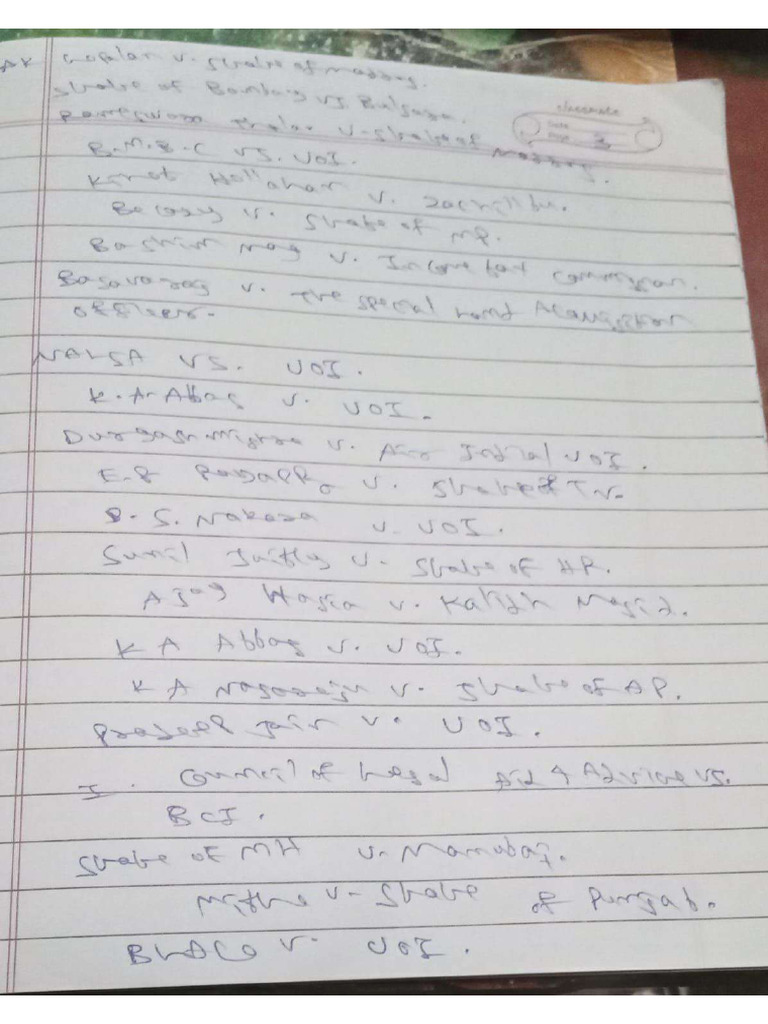 AK Gopalan v. State of Madras.
State of Bombay vs. Balsara.
Rameshwar Thalar v. State of Madras.
classmate
Date
Page 3
B.M.B.C vs. UOI.
Kihot Hollohan v. Zachillhu.
v. State of MP.
Bashir v. Income tax commission.
Basavaraj v. The special Land Acquisition
officer.
NALSA VS. UOI.
K.A. Abbas v. UOI.
Durgash Mishra v. Air India / UOI.
E.P Royappa v. State of T.N.
D.S. Nakara v. UOI.
Sunil Jaitley v. State of HR.
Ajay Hasia v. Kalidh Mujid.
K A Abbas v. UOI.
K A Nagaraju v. State of AP.
Pradeep Jain v. UOI.
I. Council of Legal Aid & Advice vs.
BCI.
State of MH v. Manubai.
Mithu v. State of Punjab.
BLACO v. UOI.